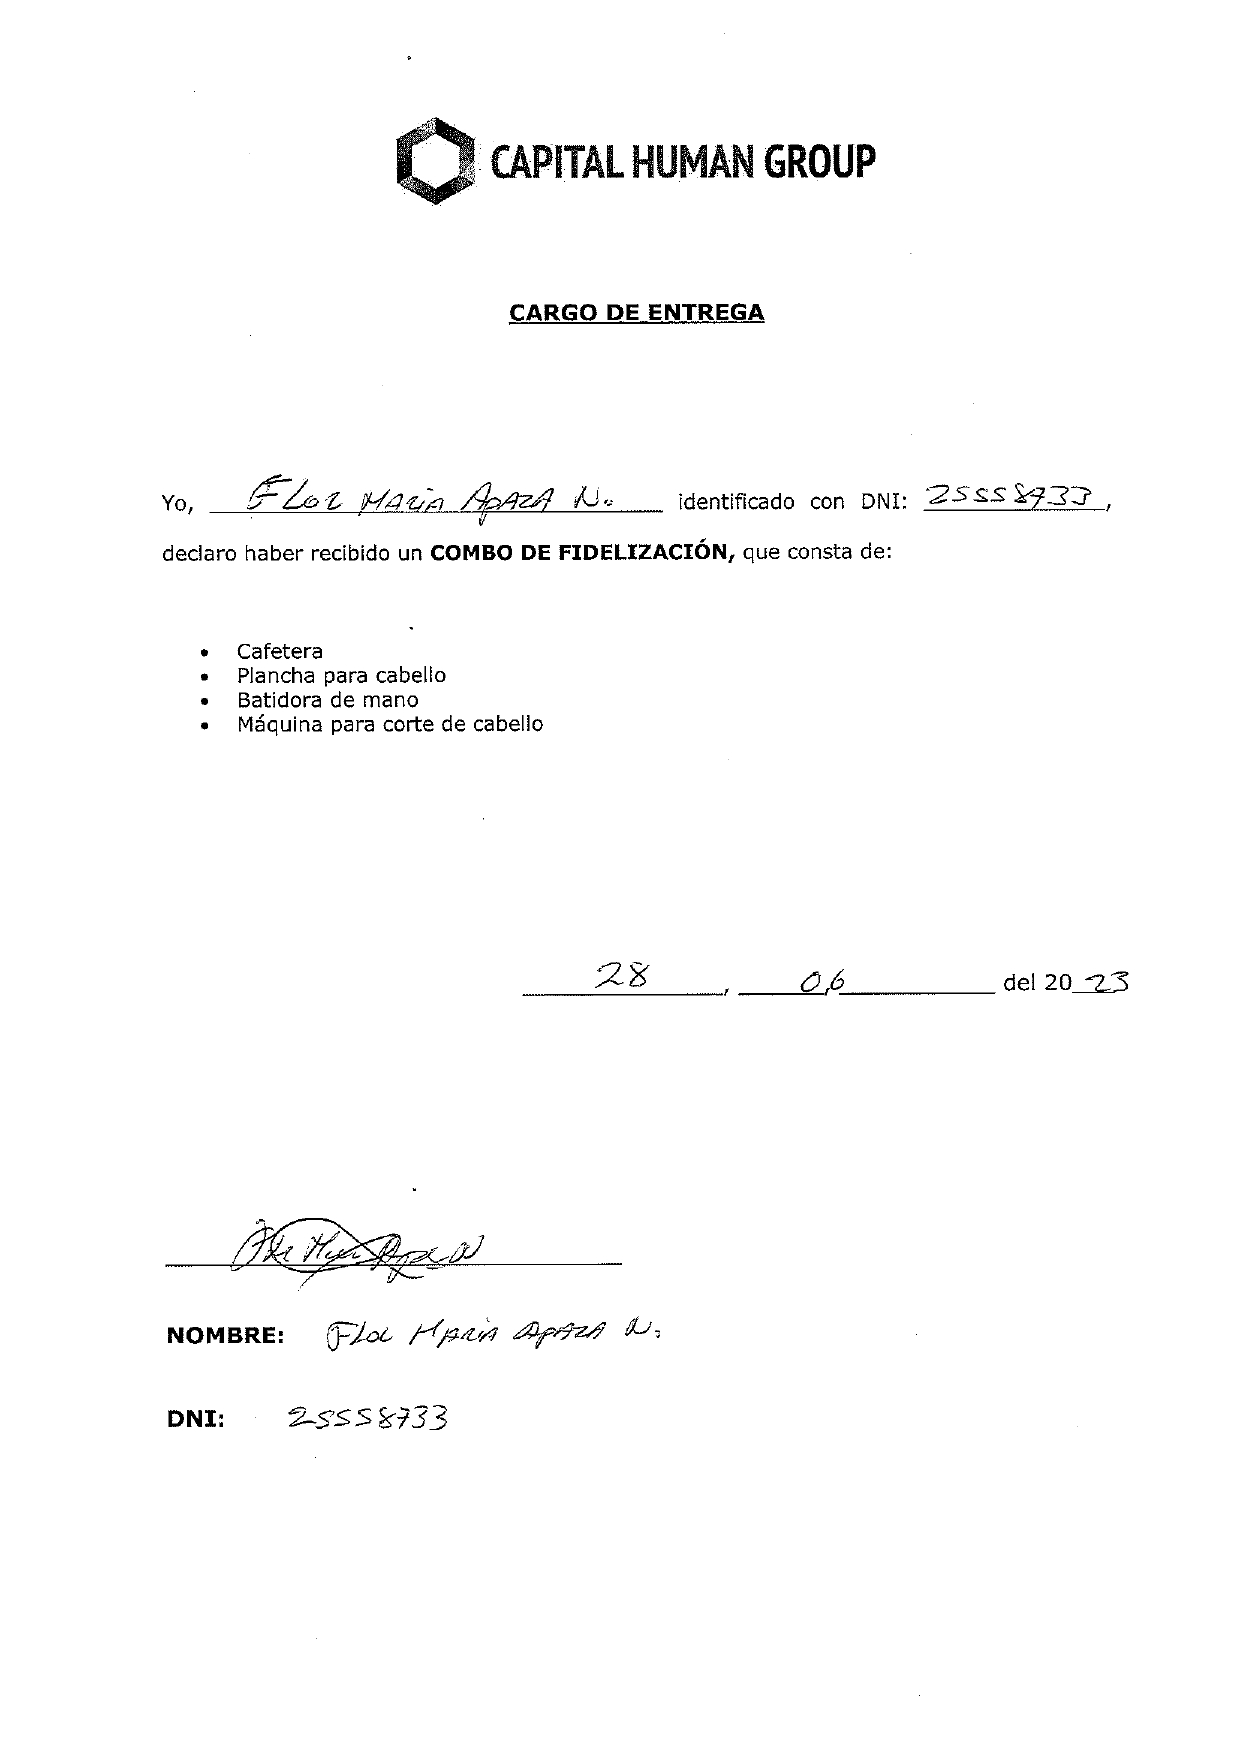 CAPITAL HUMAN GROUP
CARGO DE ENTREGA
Yo, Flor María Apaza N. identificado con DNI: 25558733,
declaro haber recibido un COMBO DE FIDELIZACIÓN, que consta de:
• Cafetera
• Plancha para cabello
• Batidora de mano
• Máquina para corte de cabello
28, 06 del 2023
Flor María Apaza N
NOMBRE: Flor María Apaza N.
DNI: 25558733